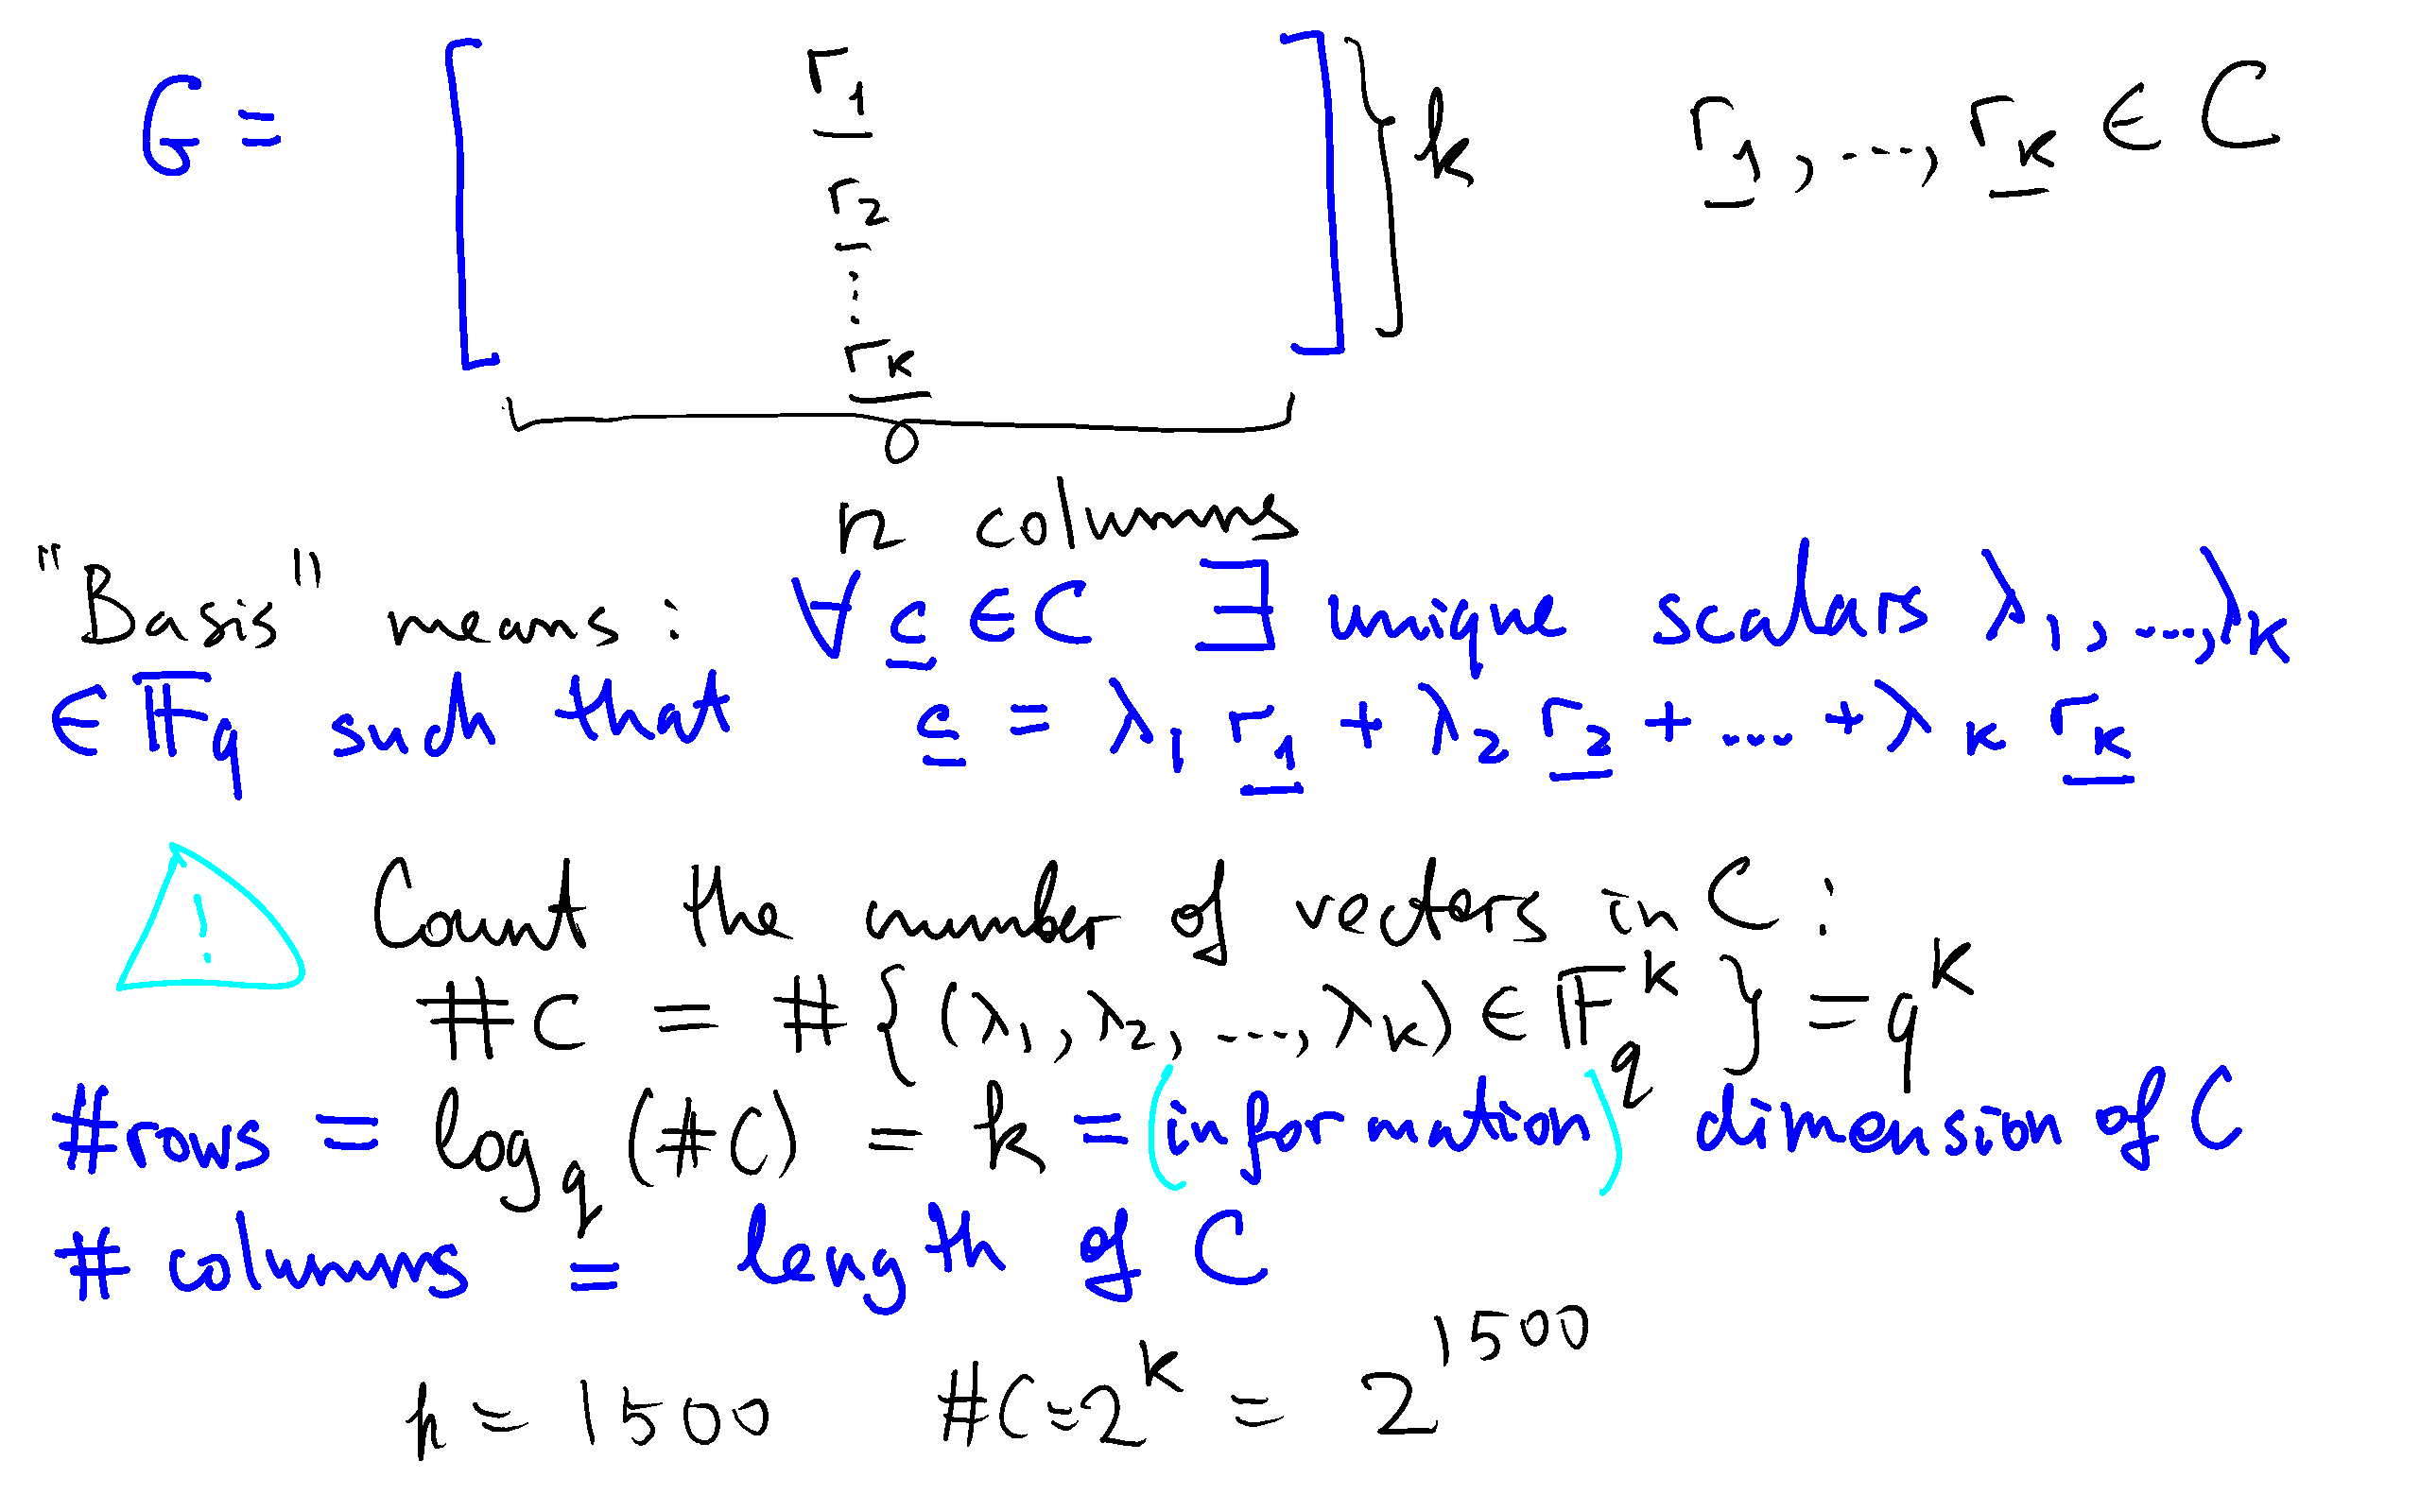 G = [ r1 r2 ⋮ rk ] } k r1, ..., rk ∈ C
n columns
"Basis" means: ∀ c ∈ C ∃ unique scalars λ1, ..., λk
∈ 𝔽q such that c = λ1 r1 + λ2 r2 + ... + λk rk
! Count the number of vectors in C:
#C = #{(λ1, λ2, ..., λk) ∈ 𝔽q^k} = q^k
#rows = log_q (#C) = k = (information) dimension of C
# columns = length of C
k = 1500 #C = 2^k = 2^1500